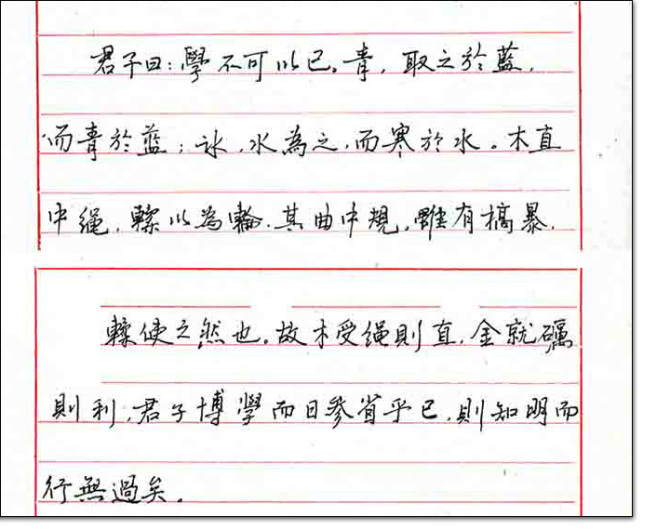 君子曰：學不可以已。青，取之於藍，
而青於藍；冰，水為之，而寒於水。木直
中繩，輮以為輪，其曲中規，雖有槁暴，
輮使之然也。故木受繩則直，金就礪
則利，君子博學而日參省乎已，則知明而
行無過矣。